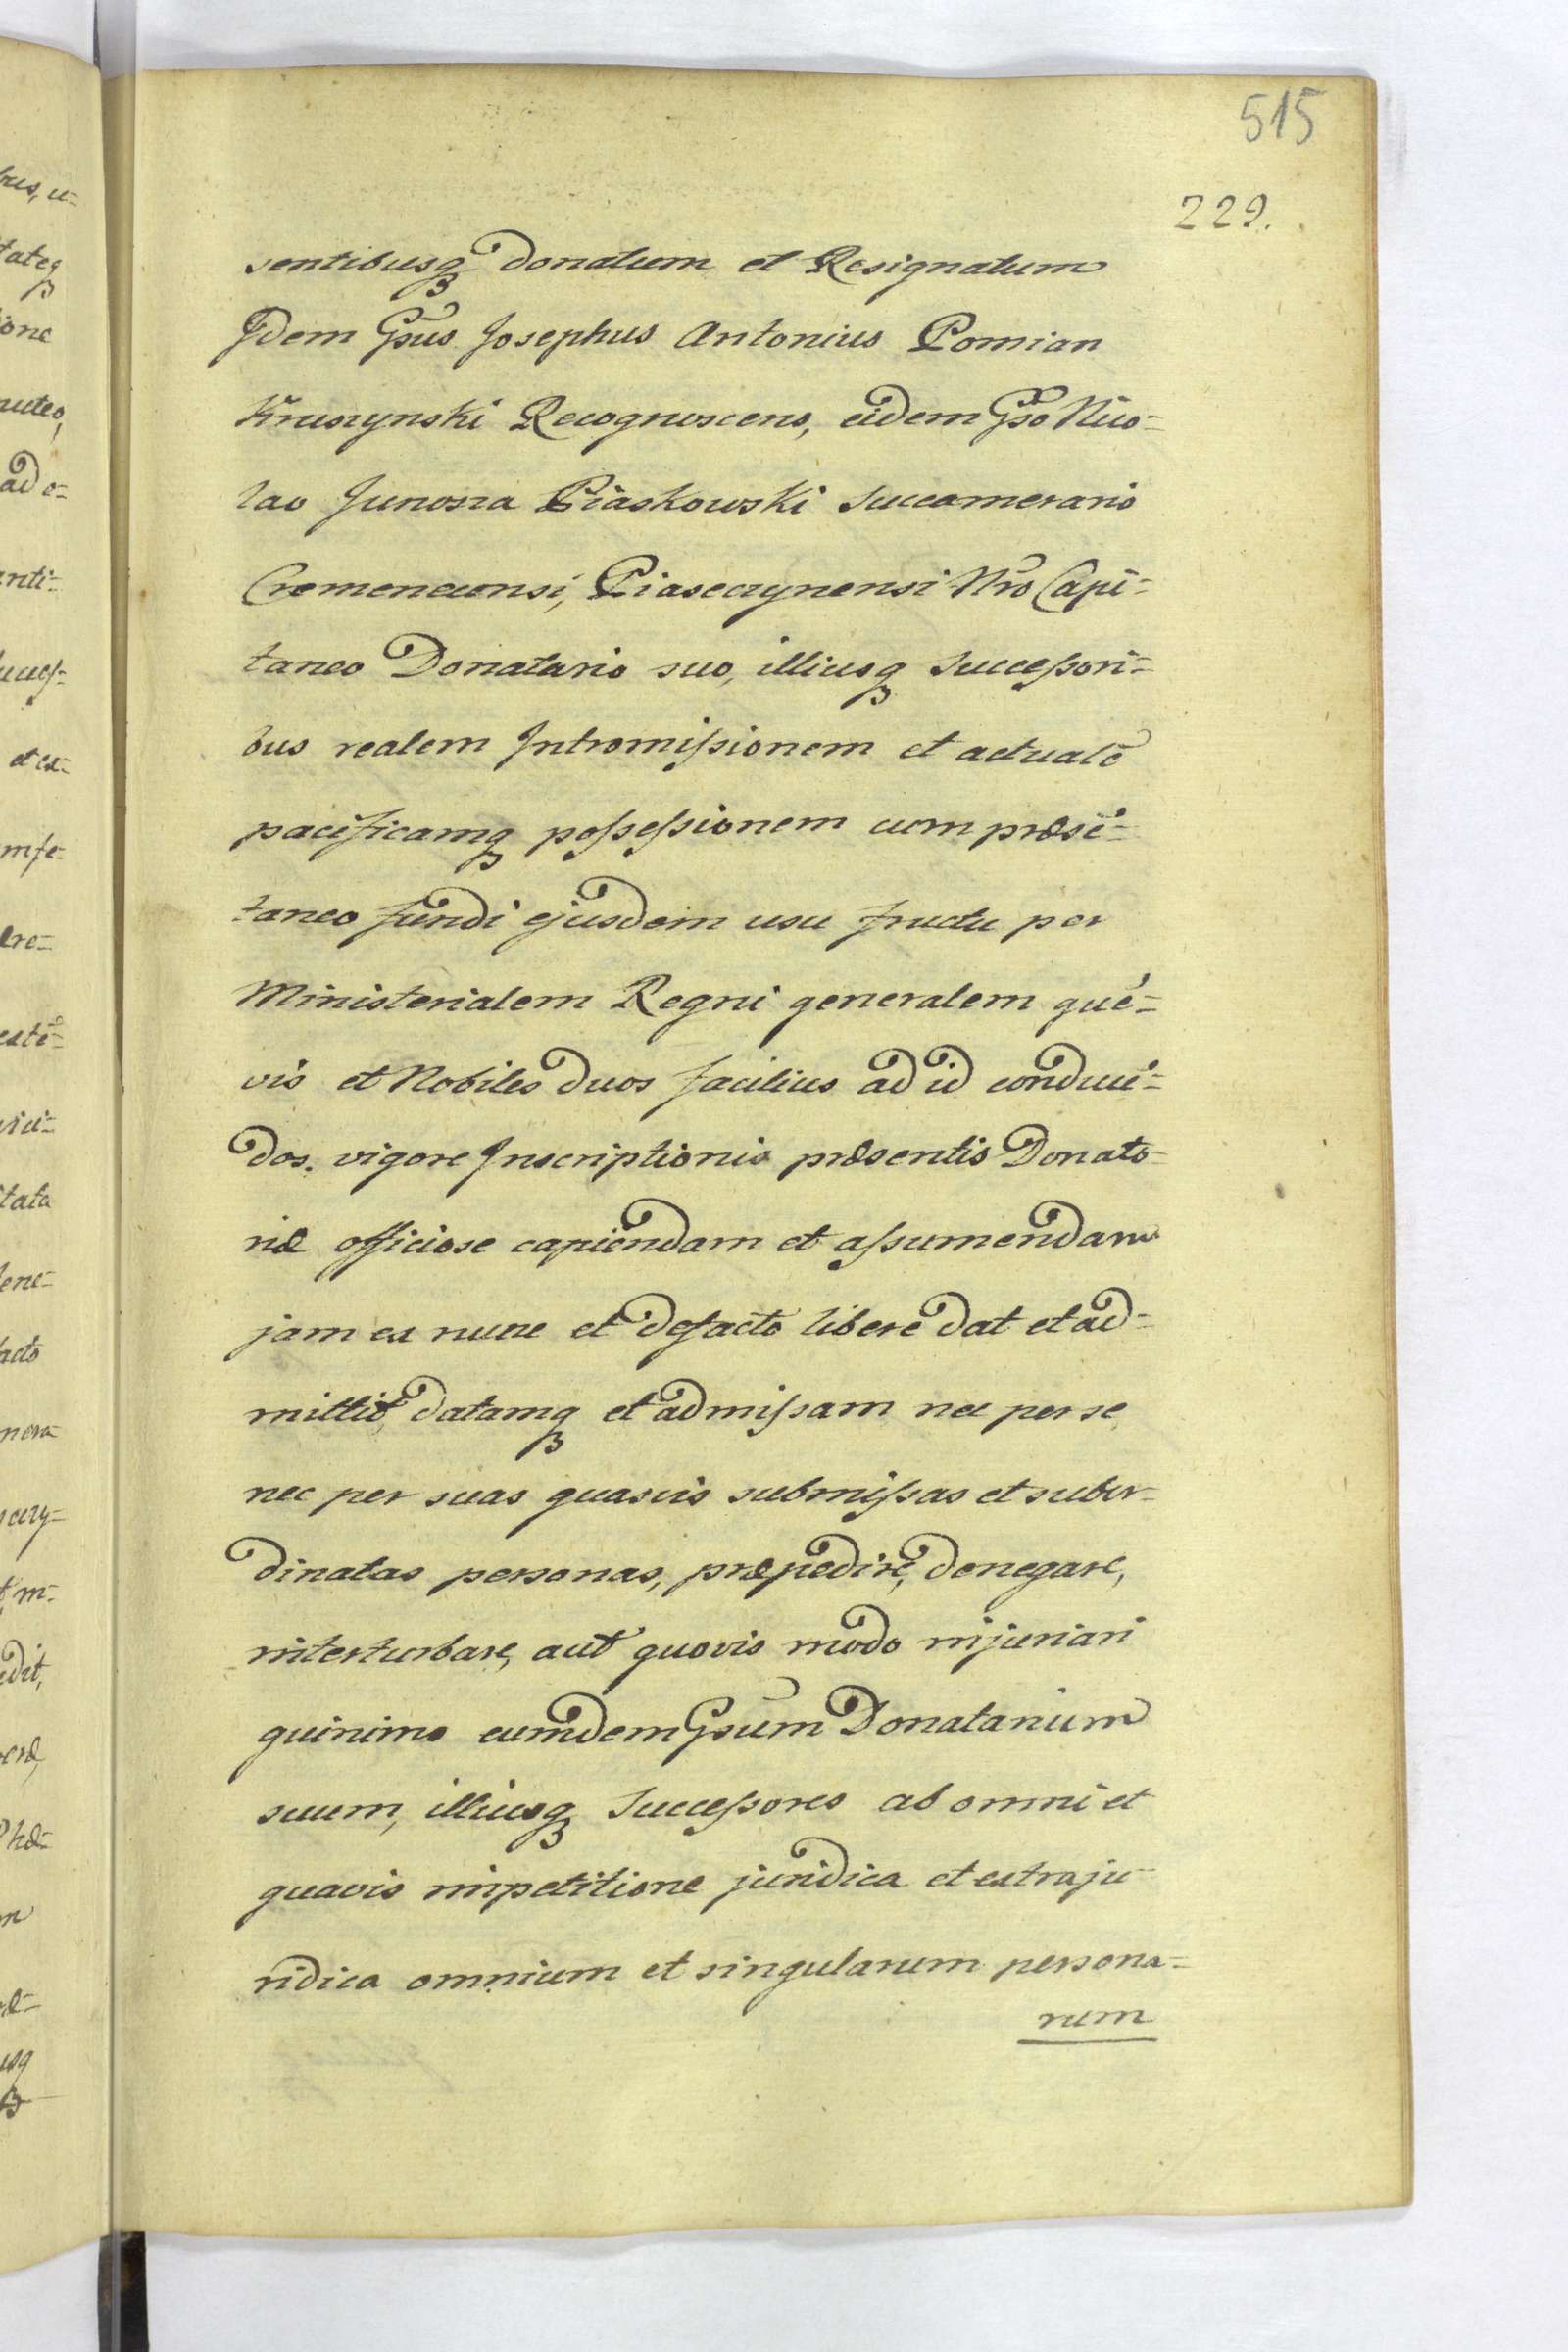 515
229.
sentibusq₃ donatum et Resignatum
Idem Gsus Josephus Antonius Pomian
Kruszynski Recognoscens, eidem Gso Nico-
lao Junosza Piaskowski Succamerario
Cremenecensi, Piaseczynensi Nro Capi-
taneo Donatario suo, illiusq₃ Successori-
bus realem Intromissionem et actualē
pacificamq₃ possessionem cum præsē-
taneo fundi ejusdem usu fructu per
Ministerialem Regni generalem quē-
vis et Nobiles duos facilius ad id conducē-
dos. vigore Inscriptionis præsentis Donato-
riæ officiose capiendam et assumendam
jam ex nunc et defacto libere dat et ad-
mittit, datamq₃ et admissam nec per se
nec per suas quasvis submissas et subor-
dinatas personas, præpedire, denegare,
interturbare, aut quovis modo injuriari
quinimo eumdem Gsum Donatarium
suum, illiusq₃ Successores ab omni et
quavis impetitione juridica et extraju-
ridica omnium et singularum persona-
rum